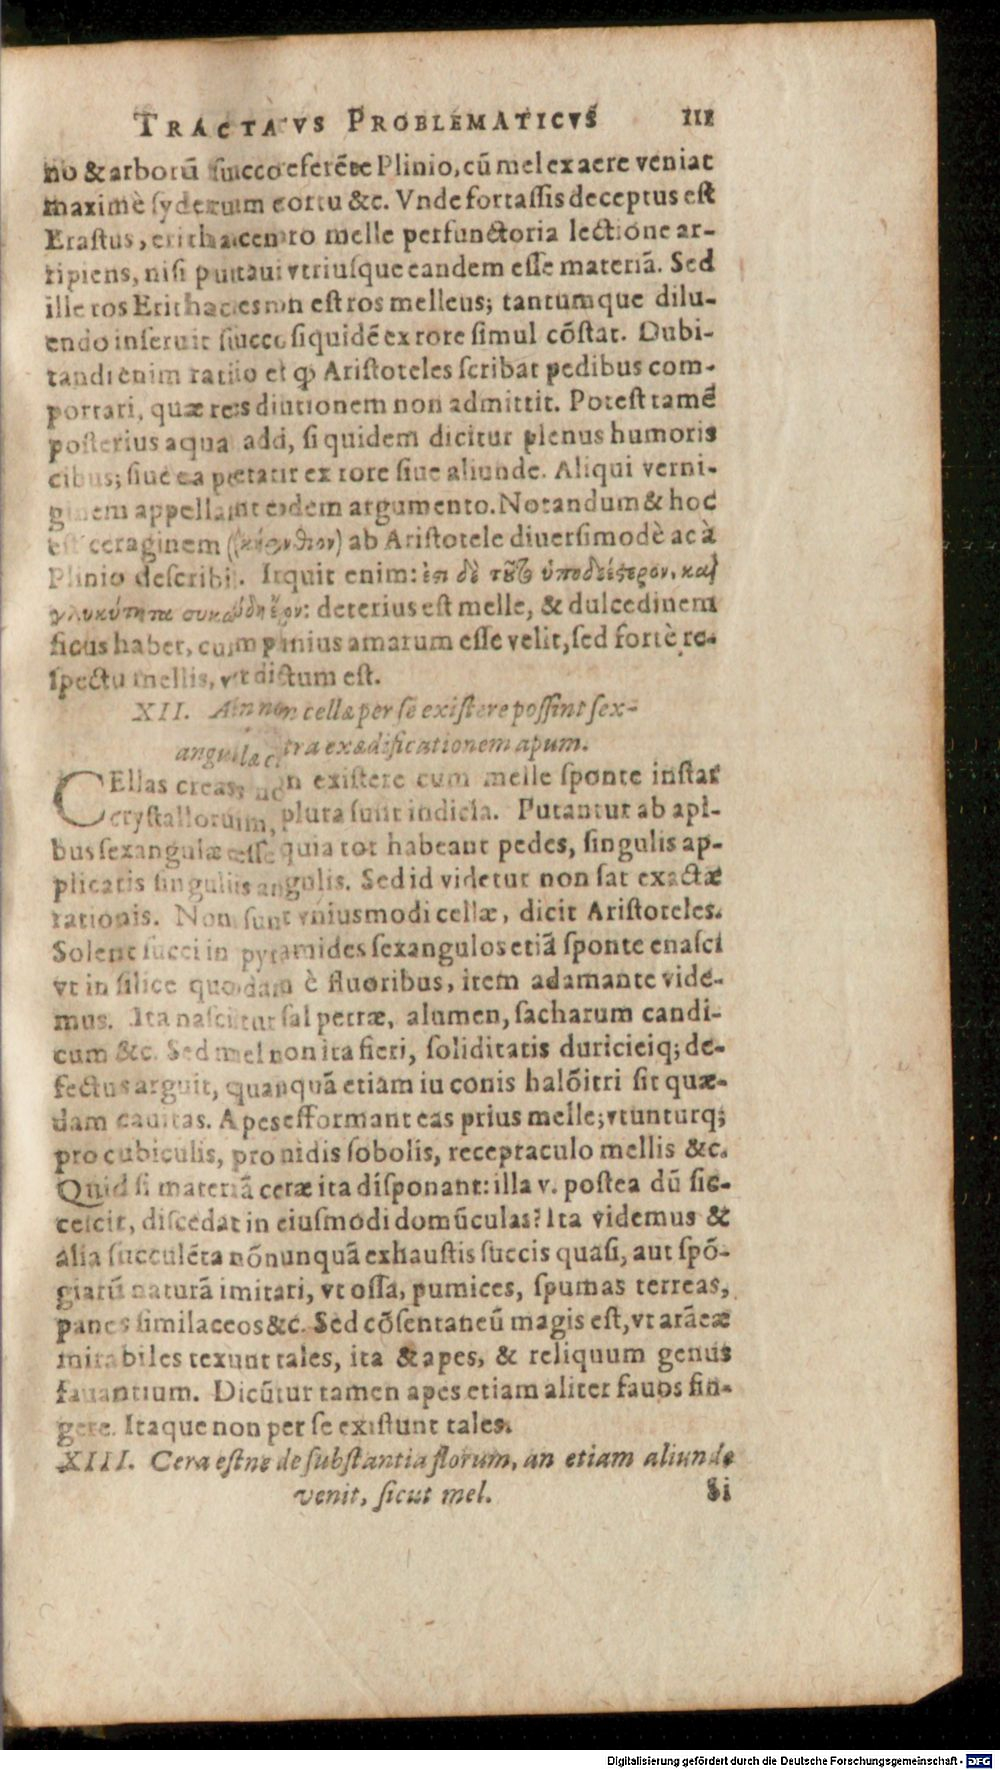 TRACTATVS PROBLEMATICVS 111
no & arborũ succo eferẽte Plinio, cũ mel ex aere veniat
maximè syderum ortu &c. Vnde fortassis deceptus est
Erastus, melle perfunctoria lectione ar-
ripiens, nisi vtriusque eandem esse materiã. Sed
ille ros est ros melleus; tantumque dilu-
endo inseruit succo siquidẽ ex rore simul cõstat. Dubi-
tandi enim ratio et ꝙ Aristoteles scribat pedibus com-
portari, quæ res non admittit. Potest tamẽ
posterius aqua addi, siquidem dicitur plenus humoris
cibus; siue ea ex rore siue aliunde. Aliqui verni-
ginem appellant eodem argumento. Notandum & hoc
est ceraginem ab Aristotele diuersimodè ac à
Plinio describi. Inquit enim: ὑποδεέστερον, καὶ
γλυκύτητα : deterius est melle, & dulcedinem
ficus habet, cum amarum esse velit, sed fortè re-
spectu mellis, vt dictum est.
XII. An non cellæ per se existere possint sex-
angulæ citra exædificationem apum.
CEllas cereas non existere cum melle sponte instar
crystallorum, plura sunt indicia. Putantur ab api-
bus sexangulæ esse quia tot habeant pedes, singulis ap-
plicatis singulis angulis. Sed id videtur non sat exactæ
rationis. Non sunt vniusmodi cellæ, dicit Aristoteles.
Solent succi in pyramides sexangulos etiã sponte enasci
vt in silice quodam è fluoribus, item adamante vide-
mus. Ita nascitur sal petræ, alumen, sacharum candi-
cum &c. Sed mel non ita fieri, soliditatis duricieiq; de-
fectus arguit, quanquã etiam in conis halõitri sit quæ-
dam cauitas. Apes efformant eas prius melle; vtunturq;
pro cubiculis, pro nidis sobolis, receptaculo mellis &c.
Quid si materiã ceræ ita disponant: illa v. postea dũ sic-
cescit, discedat in eiusmodi domũculas? Ita videmus &
alia succulẽta nõnunquã exhaustis succis quasi, aut spõ-
giarũ naturã imitari, vt ossa, pumices, spumas terreas,
panes similaceos &c. Sed cõsentaneũ magis est, vt arãeæ
mirabiles texunt tales, ita & apes, & reliquum genus
fauantium. Dicũtur tamen apes etiam aliter fauos fin-
gere. Itaque non per se existunt tales.
XIII. Cera estne de substantia florum, an etiam aliunde
venit, sicut mel. Si
Digitalisierung gefördert durch die Deutsche Forschungsgemeinschaft - DFG